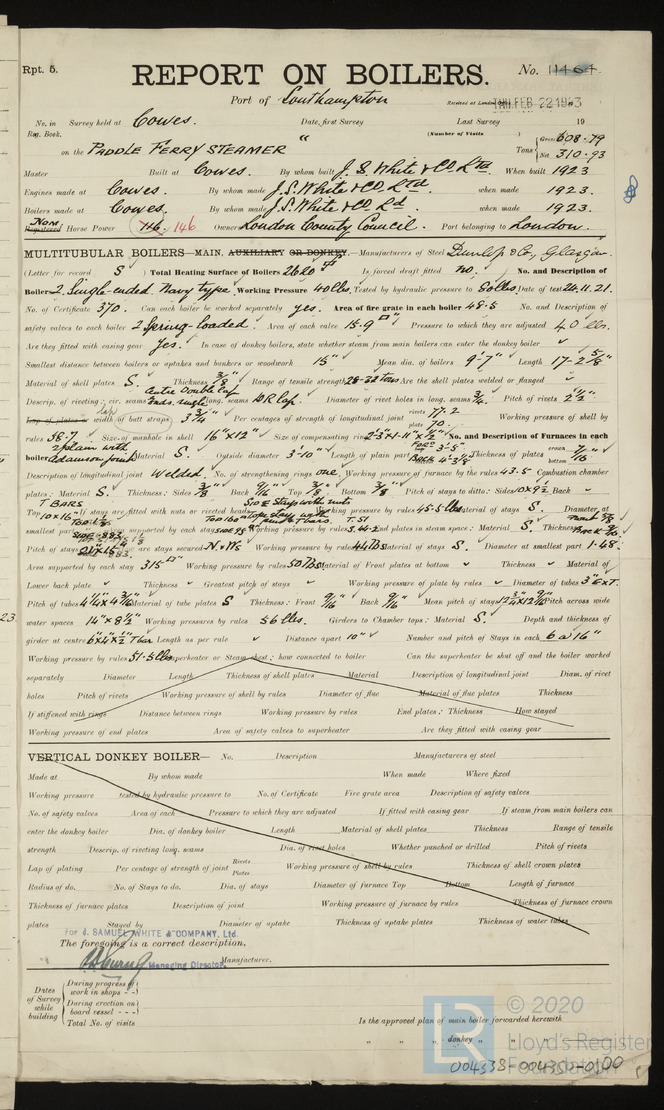 Rpt. 5.
REPORT ON BOILERS.
No. 11464
Port of Southampton
Received at London Office THU. FEB. 22 1923
No. in Survey held at Cowes. Date, first Survey " Last Survey 19
Reg. Book. (Number of Visits )
on the PADDLE FERRY STEAMER Tons { Gross 608.79
Net 310.93
Master Built at Cowes. By whom built J. S. White & Co Ltd. When built 1923
Engines made at Cowes. By whom made J. S. White & Co Ltd when made 1923.
Boilers made at Cowes. By whom made J. S. White & Co Ld. when made 1923.
Nom Registered Horse Power 146 146 Owner London County Council. Port belonging to London.
MULTITUBULAR BOILERS—MAIN, AUXILIARY OR DONKEY.—Manufacturers of Steel Dunlop & Co, Glasgow.
(Letter for record S ) Total Heating Surface of Boilers 2620 Is forced draft fitted no. No. and Description of
Boilers 2 Single-ended Navy type Working Pressure 40 lbs. Tested by hydraulic pressure to 80 lbs Date of test 24.11.21.
No. of Certificate 370. Can each boiler be worked separately yes. Area of fire grate in each boiler 48.5 No. and Description of
safety valves to each boiler 2 Spring-loaded. Area of each valve 15.9 □" Pressure to which they are adjusted 40 lbs.
Are they fitted with easing gear yes. In case of donkey boilers, state whether steam from main boilers can enter the donkey boiler
Smallest distance between boilers or uptakes and bunkers or woodwork 15" Mean dia. of boilers 9'-7" Length 17-2 5/8"
Material of shell plates S. Thickness 3/8" Range of tensile strength 28-32 tons Are the shell plates welded or flanged
Descrip. of riveting: cir. seams Centre Double lap Ends. single long. seams DR lap. Diameter of rivet holes in long. seams 3/4" Pitch of rivets 2 1/2"
Lap of plates or width of butt straps lap 3 3/4" Per centages of strength of longitudinal joint rivets 77.2 plate 70. Working pressure of shell by
rules 58.7 Size of manhole in shell 16" x 12" Size of compensating ring 2'3" x 1'-11" x 1/2" No. and Description of Furnaces in each
boiler 2 plain with Adamson joint Material S. Outside diameter 3'-10" Length of plain part Thickness of plates crown bottom 7/16"
Description of longitudinal joint Welded. No. of strengthening rings one. Working pressure of furnace by the rules 43.5 Combustion chamber
plates: Material S. Thickness: Sides 3/8 Back 9/16 Top 3/8 Bottom 3/8 Pitch of stays to ditto: Sides 10 x 9 1/2 Back
Top 10 x 16" If stays are fitted with nuts or riveted heads Working pressure by rules 45.5 lbs Material of stays S. Diameter at
smallest part Area supported by each stay Working pressure by rules End plates in steam space: Material S Thickness
Pitch of stays 21 x 15 How are stays secured N. & Ws Working pressure by rules 44 lbs Material of stays S. Diameter at smallest part 1.48.
Area supported by each stay 315 □" Working pressure by rules 50 lbs Material of Front plates at bottom Thickness Material of
Lower back plate Thickness Greatest pitch of stays Working pressure of plate by rules Diameter of tubes 3" EXT.
Pitch of tubes 4 1/4 x 4 3/16 Material of tube plates S Thickness: Front 9/16 Back 9/16 Mean pitch of stays 12 3/4 x 12 9/16 Pitch across wide
water spaces 14" x 8 1/2" Working pressures by rules 56 lbs. Girders to Chamber tops: Material S. Depth and thickness of
girder at centre 6 x 4 x 1/2 T bar Length as per rule Distance apart 10" Number and pitch of Stays in each 6 at 16"
Working pressure by rules 51.5 lbs Superheater or Steam chest; how connected to boiler Can the superheater be shut off and the boiler worked
separately Diameter Length Thickness of shell plates Material Description of longitudinal joint Diam. of rivet
holes Pitch of rivets Working pressure of shell by rules Diameter of flue Material of flue plates Thickness
If stiffened with rings Distance between rings Working pressure by rules End plates: Thickness How stayed
Working pressure of end plates Area of safety valves to superheater Are they fitted with easing gear
VERTICAL DONKEY BOILER— No. Description Manufacturers of steel
Made at By whom made When made Where fixed
Working pressure tested by hydraulic pressure to No. of Certificate Fire grate area Description of safety valves
No. of safety valves Area of each Pressure to which they are adjusted If fitted with easing gear If steam from main boilers can
enter the donkey boiler Dia. of donkey boiler Length Material of shell plates Thickness Range of tensile
strength Descrip. of riveting long. seams Dia. of rivet holes Whether punched or drilled Pitch of rivets
Lap of plating Per centage of strength of joint Rivets Plates Working pressure of shell by rules Thickness of shell crown plates
Radius of do. No. of Stays to do. Dia. of stays Diameter of furnace Top Bottom Length of furnace
Thickness of furnace plates Description of joint Working pressure of furnace by rules Thickness of furnace crown
plates Stayed by Diameter of uptake Thickness of uptake plates Thickness of water tubes
For J. SAMUEL WHITE & COMPANY, Ltd.
The foregoing is a correct description,
Managing Director. Manufacturer.
Dates of Survey while building
During progress of work in shops - -
During erection on board vessel - - -
Total No. of visits
Is the approved plan of main boiler forwarded herewith
" " " donkey " " "
LR © 2020
Lloyd's Register
Foundation
004338-004350-0100
23.